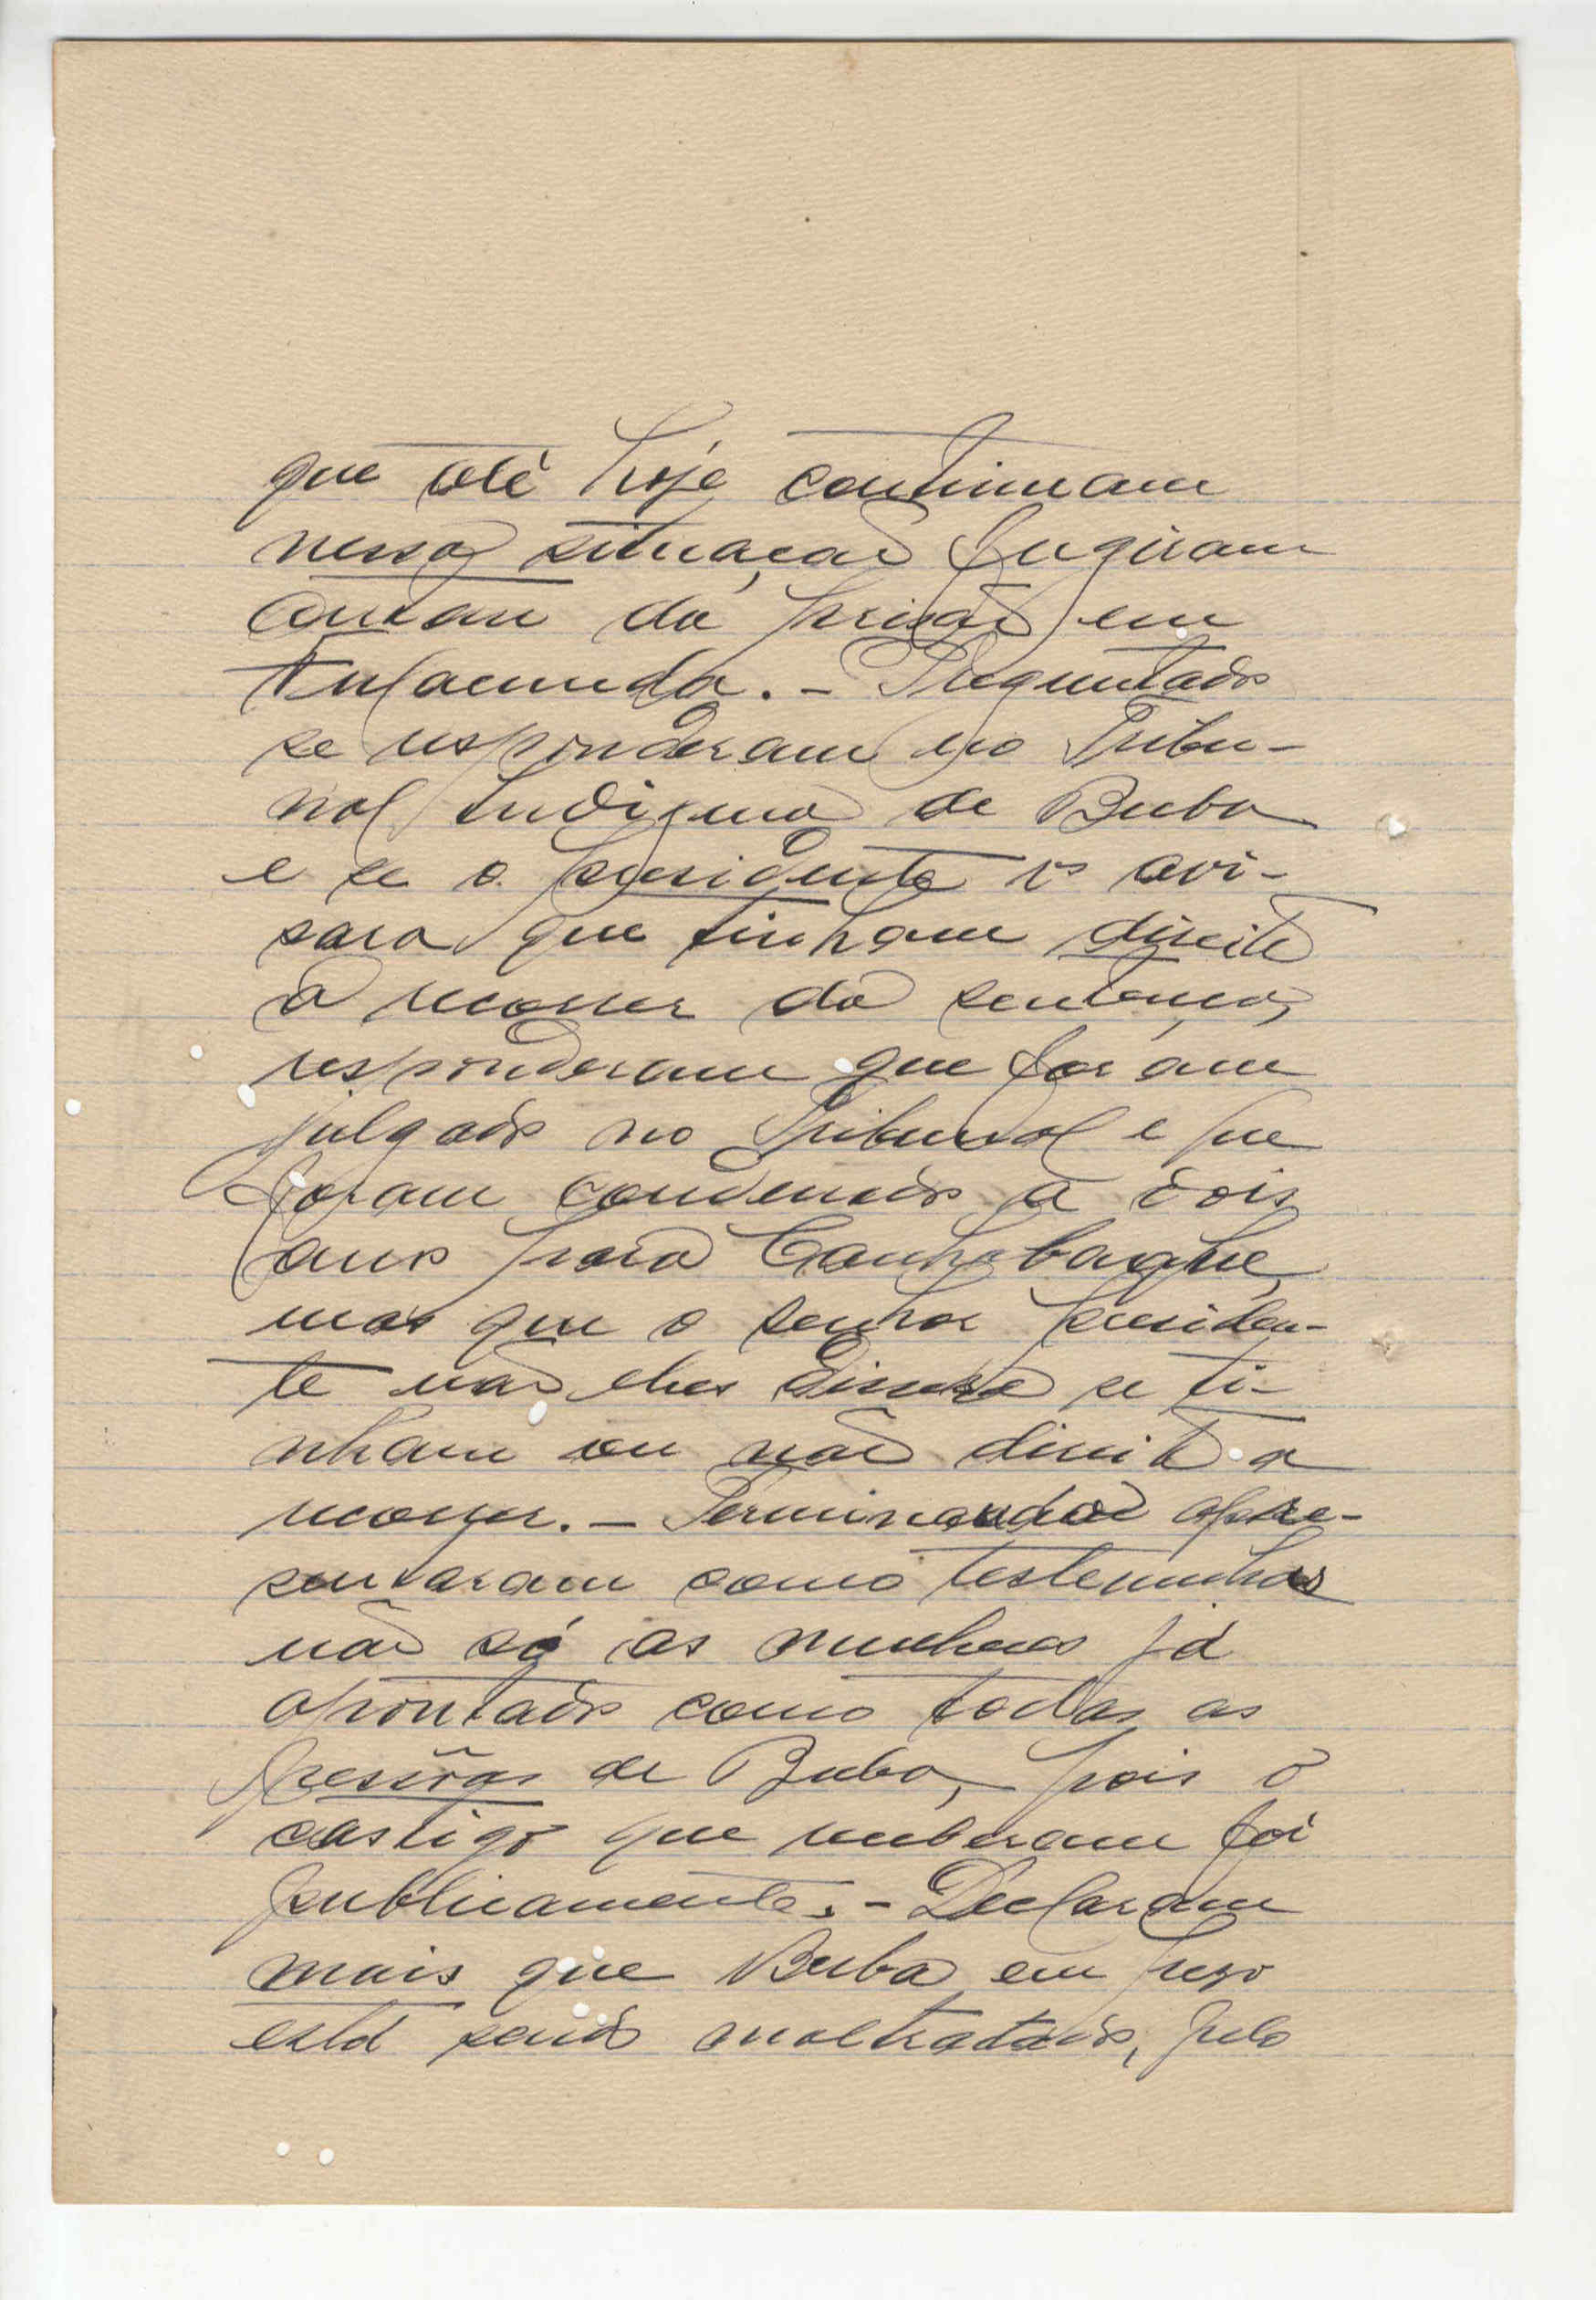 que até hoje continuam
nessa situação fugiram
da prisão em
Enfacunda. - Preguntados
se responderam no Tribu-
nal Indigena de Buba
e se o presidente os avi-
sara que tinham direito
a recorrer da sentença,
responderam que foram
julgados no Tribunal e que
foram condenados a dois
anos para Canhabaque,
mas que o senhor presiden-
te não lhes dissera se ti-
nham ou não direito a
recorrer. - Terminando apre-
sentaram como testemunhas
não só as mulheres já
apontadas como todas as
pessôas de Buba, pois o
castigo que receberam foi
publicamente. - Declaram
mais que Buba em peso
está sendo maltratado, pelo